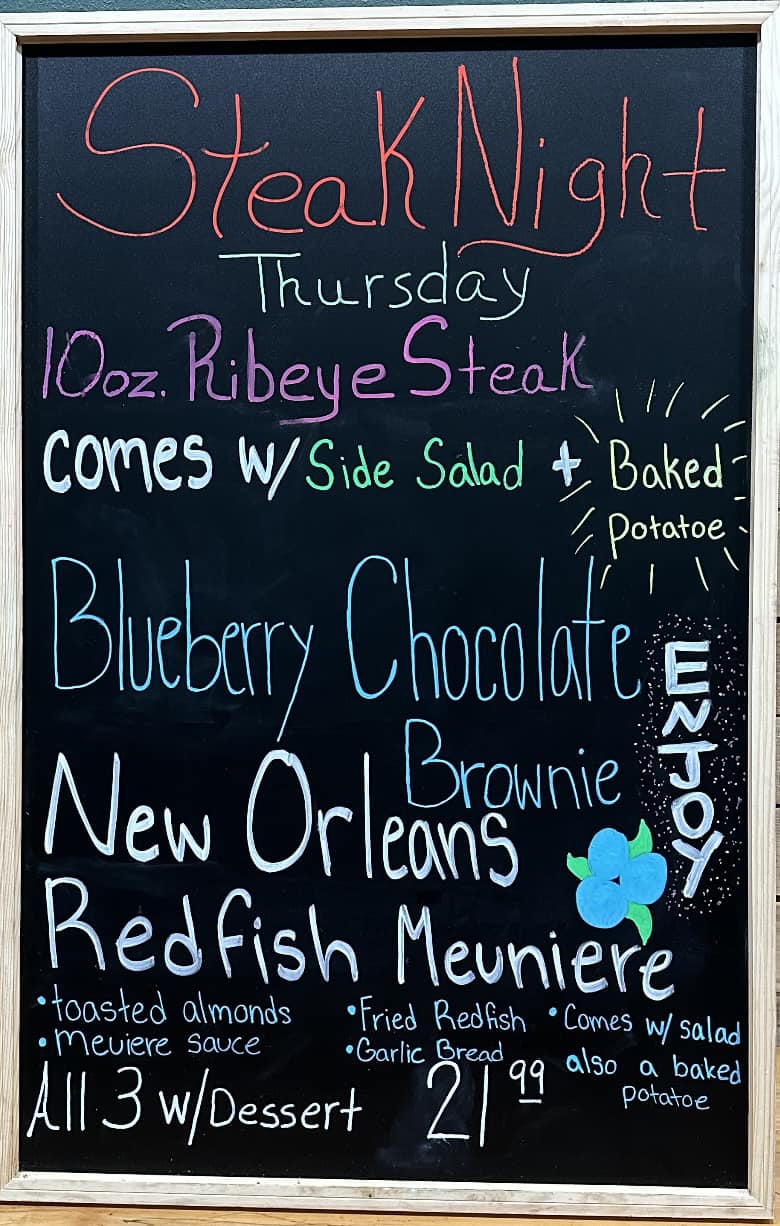 Steak Night
Thursday
10oz. Ribeye Steak
comes w/ Side Salad + Baked
Potatoe
Blueberry Chocolate
Brownie
ENJOY
New Orleans
Redfish Meuniere
• toasted almonds
• meuiere sauce
• Fried Redfish
• Garlic Bread
• Comes w/ salad
also a baked
potatoe
All 3 w/Dessert 21 99